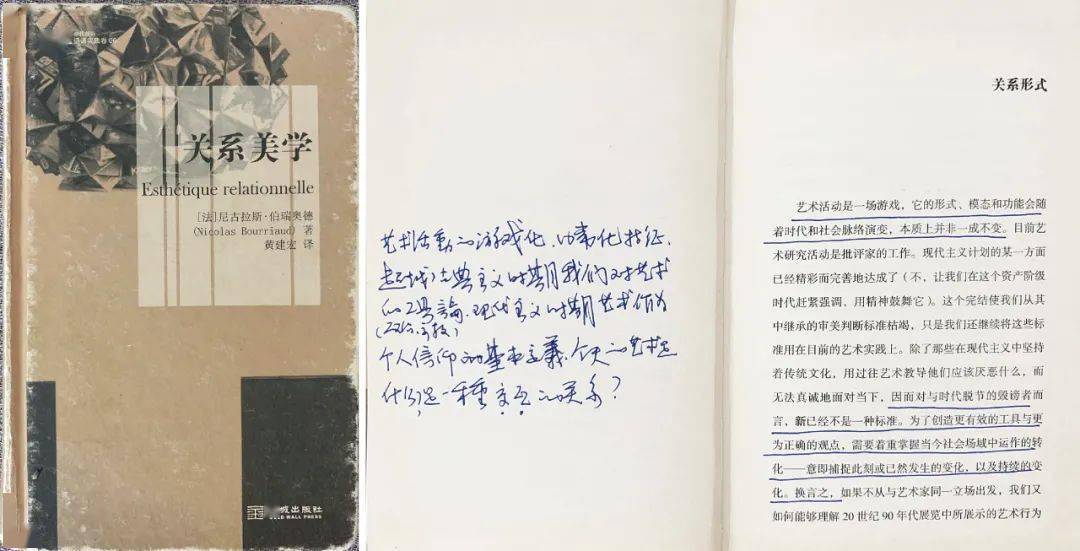 关系美学
Esthétique relationnelle
[法]尼古拉斯·伯瑞奥德
(Nicolas Bourriaud) 著
黄建宏 译
城出版社
GOLD WALL PRESS
艺术活动的游戏化,
古典主义时期我们对艺术
现代主义时期艺术作为
个人信仰的基本定义,今天的艺术是
什么,是一種交互的关系?
关系形式
艺术活动是一场游戏,它的形式、模态和功能会随
着时代和社会脉络演变,本质上并非一成不变。目前艺
术研究活动是批评家的工作。现代主义计划的某一方面
已经精彩而完善地达成了(不,让我们在这个资产阶级
时代赶紧强调、用精神鼓舞它)。这个完结使我们从其
中继承的审美判断标准枯竭,只是我们还继续将这些标
准用在目前的艺术实践上。除了那些在现代主义中坚持
着传统文化,用过往艺术教导他们应该厌恶什么,而
无法真诚地面对当下,因而对与时代脱节的毁谤者而
言,新已经不是一种标准。为了创造更有效的工具与更
为正确的观点,需要着重掌握当今社会场域中运作的转
化——意即捕捉此刻或已然发生的变化,以及持续的变
化。换言之,如果不从与艺术家同一立场出发,我们又
如何能够理解 20 世纪 90 年代展览中所展示的艺术行为